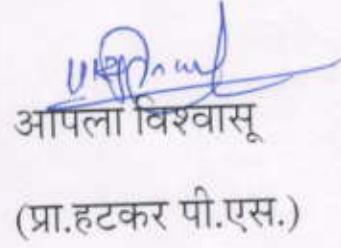 आपला विश्वासू
(प्रा.हटकर पी.एस.)